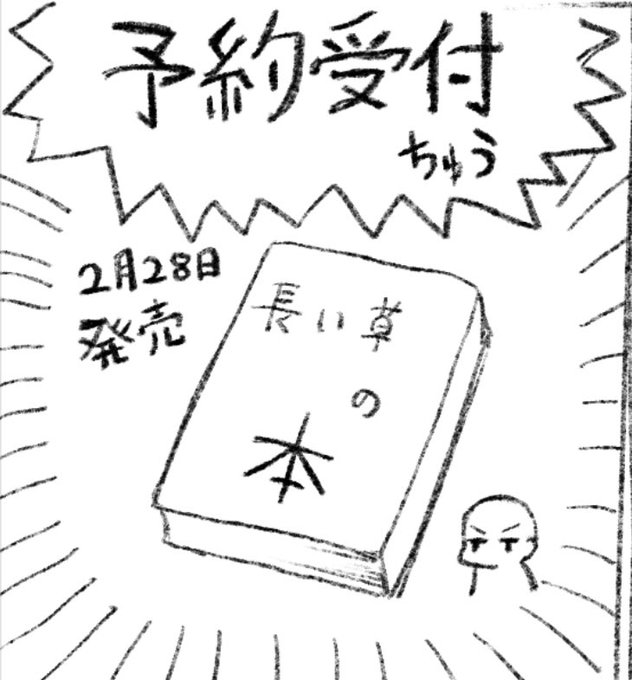 予約受付
ちゅう
2月28日
発売
長い草
の
本